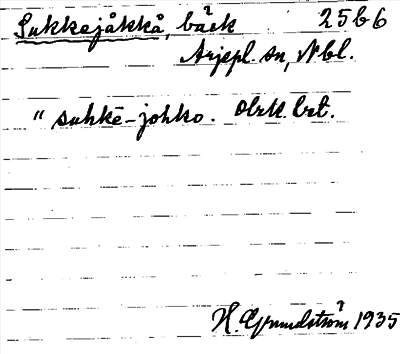 Sukkejåkkå, bäck 25b6
Arjepl. sn, Nbl.
" suhkē-johko. Obek. bet.
H. Grundström 1935